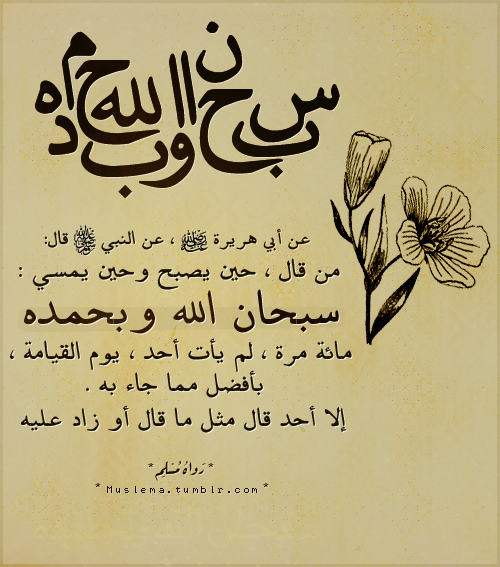 سبحان الله وبحمده
عن أبي هريرة ﷺ ، عن النبي ﷺ قال:
من قال ، حين يصبح وحين يمسي :
سبحان الله وبحمده
مائة مرة ، لم يأت أحد ، يوم القيامة ،
بأفضل مما جاء به .
إلا أحد قال مثل ما قال أو زاد عليه
* رَوَاهُ مُسْلِم *
* Muslema.tumblr.com *